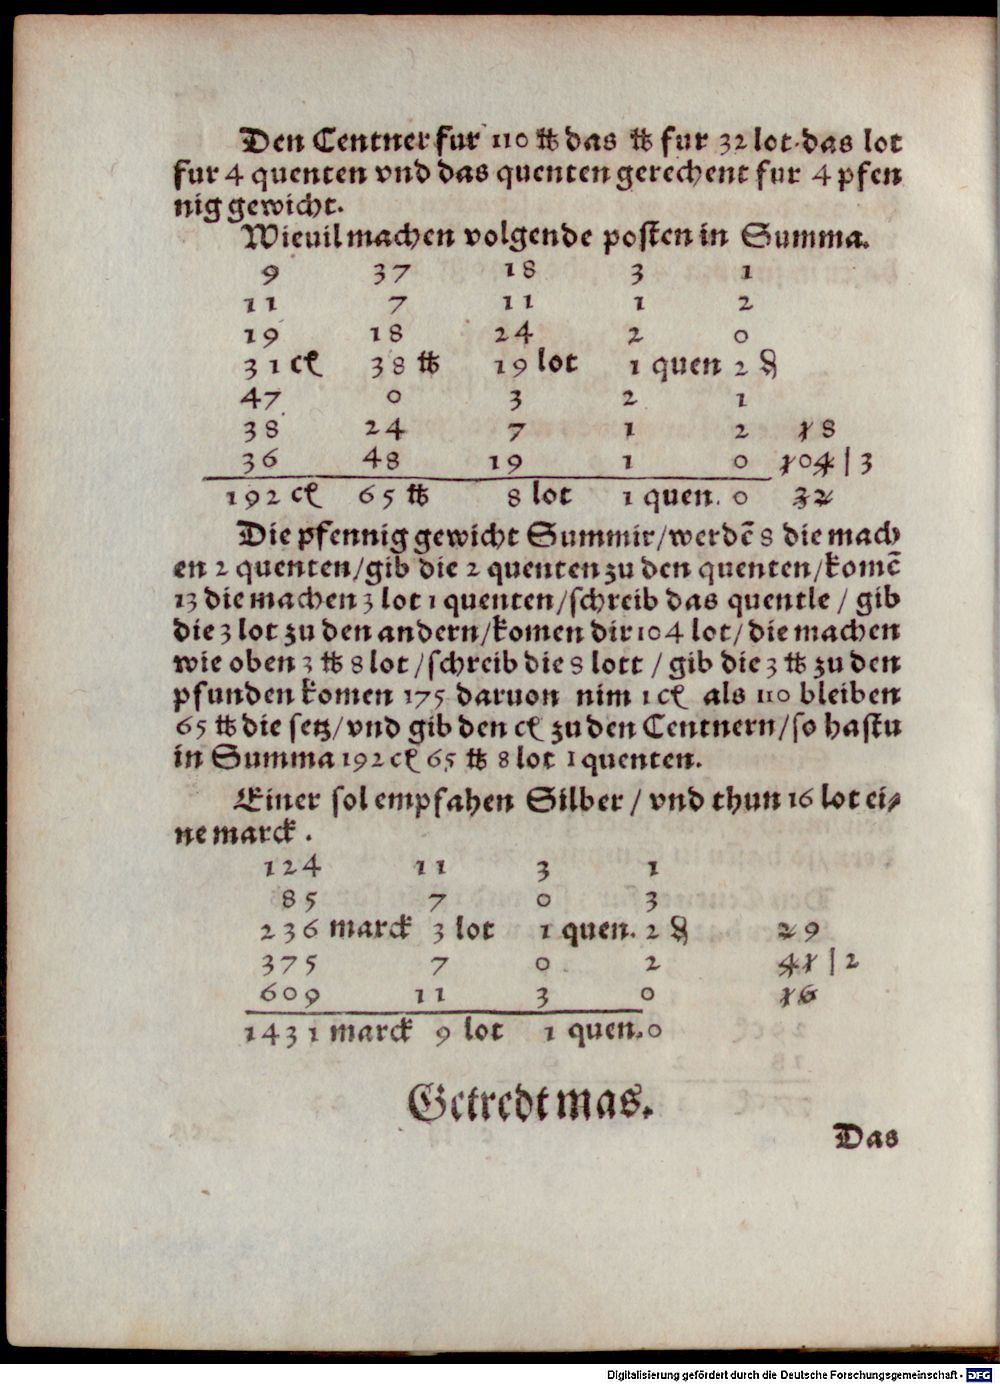 Den Centner fur 110 ℔ das ℔ fur 32 lot das lot
fur 4 quenten vnd das quenten gerechent fur 4 pfen
nig gewicht.
Wieuil machen volgende posten in Summa.
9 37 18 3 1
11 7 11 1 2
19 18 24 2 0
31 cł 38 ℔ 19 lot 1 quen 2 ₰
47 0 3 2 1
38 24 7 1 2 18
36 48 19 1 0 104 | 3
192 cł 65 ℔ 8 lot 1 quen. 0 32
Die pfennig gewicht Summir/werdē 8 die mach
en 2 quenten/gib die 2 quenten zu den quenten/komē
13 die machen 3 lot 1 quenten/schreib das quentle / gib
die 3 lot zu den andern/komen dir 104 lot/die machen
wie oben 3 ℔ 8 lot/schreib die 8 lott / gib die 3 ℔ zu den
pfunden komen 175 daruon nim 1 cł als 110 bleiben
65 ℔ die setz/vnd gib den cł zu den Centnern/so hastu
in Summa 192 cł 65 ℔ 8 lot 1 quenten.
Einer sol empfahen Silber / vnd thun 16 lot ei⸗
ne marck .
124 11 3 1
85 7 0 3
236 marck 3 lot 1 quen. 2 ₰ 29
375 7 0 2 41 | 2
609 11 3 0 16
1431 marck 9 lot 1 quen. 0
Getredt mas.
Das
Digitalisierung gefördert durch die Deutsche Forschungsgemeinschaft - DFG